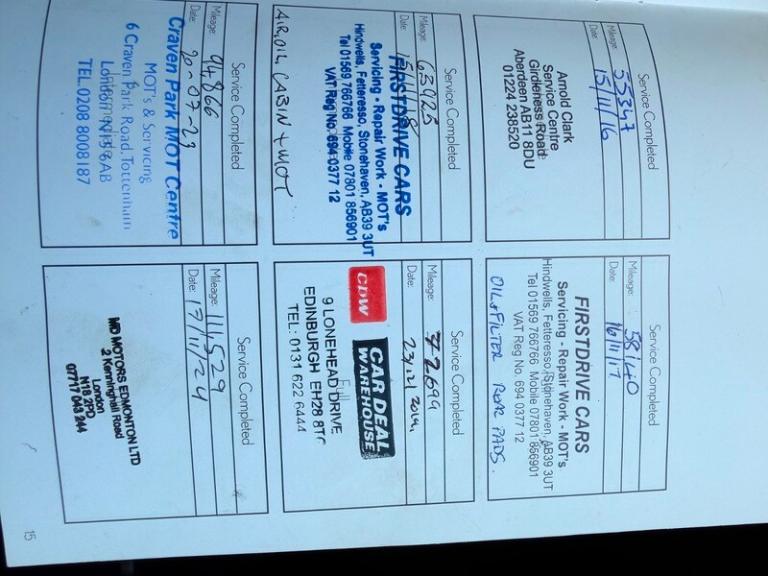 Service Completed
Mileage: 55347
Date: 15/11/16
Arnold Clark
Service Centre
Girdleness Road
Aberdeen AB11 8DU
01224 238520
Service Completed
Mileage: 58140
Date: 16/11/17
FIRSTDRIVE CARS
Servicing - Repair Work - MOT's
Hindwells, Fetteresso, Stonehaven, AB39 3UT
Tel 01569 766766 Mobile 07801 856901
VAT Reg No. 694 0377 12
OIL & FILTER REAR PADS.
Service Completed
Mileage: 63925
Date:
FIRSTDRIVE CARS
Servicing - Repair Work - MOT's
Hindwells, Fetteresso, Stonehaven, AB39 3UT
Tel 01569 766766 Mobile 07801 856901
VAT Reg No. 694 0377 12
AIR, OIL, CABIN + MOT
Service Completed
Mileage: 72699
Date:
CDW CAR DEAL WAREHOUSE
Full
9 LONEHEAD DRIVE
EDINBURGH EH28 8T
TEL: 0131 622 6444
Service Completed
Mileage: 94,866
Date: 20-07-23
Craven Park MOT Centre
MOT's & Servicing
6 Craven Park Road, Tottenham
London N15 6AB
TEL. 0208 8008187
Service Completed
Mileage: 111,529
Date: 17/11/24
MD MOTORS EDMONTON LTD
2 Kenninghall Road
London
N18 2PD
07717 043 244
15